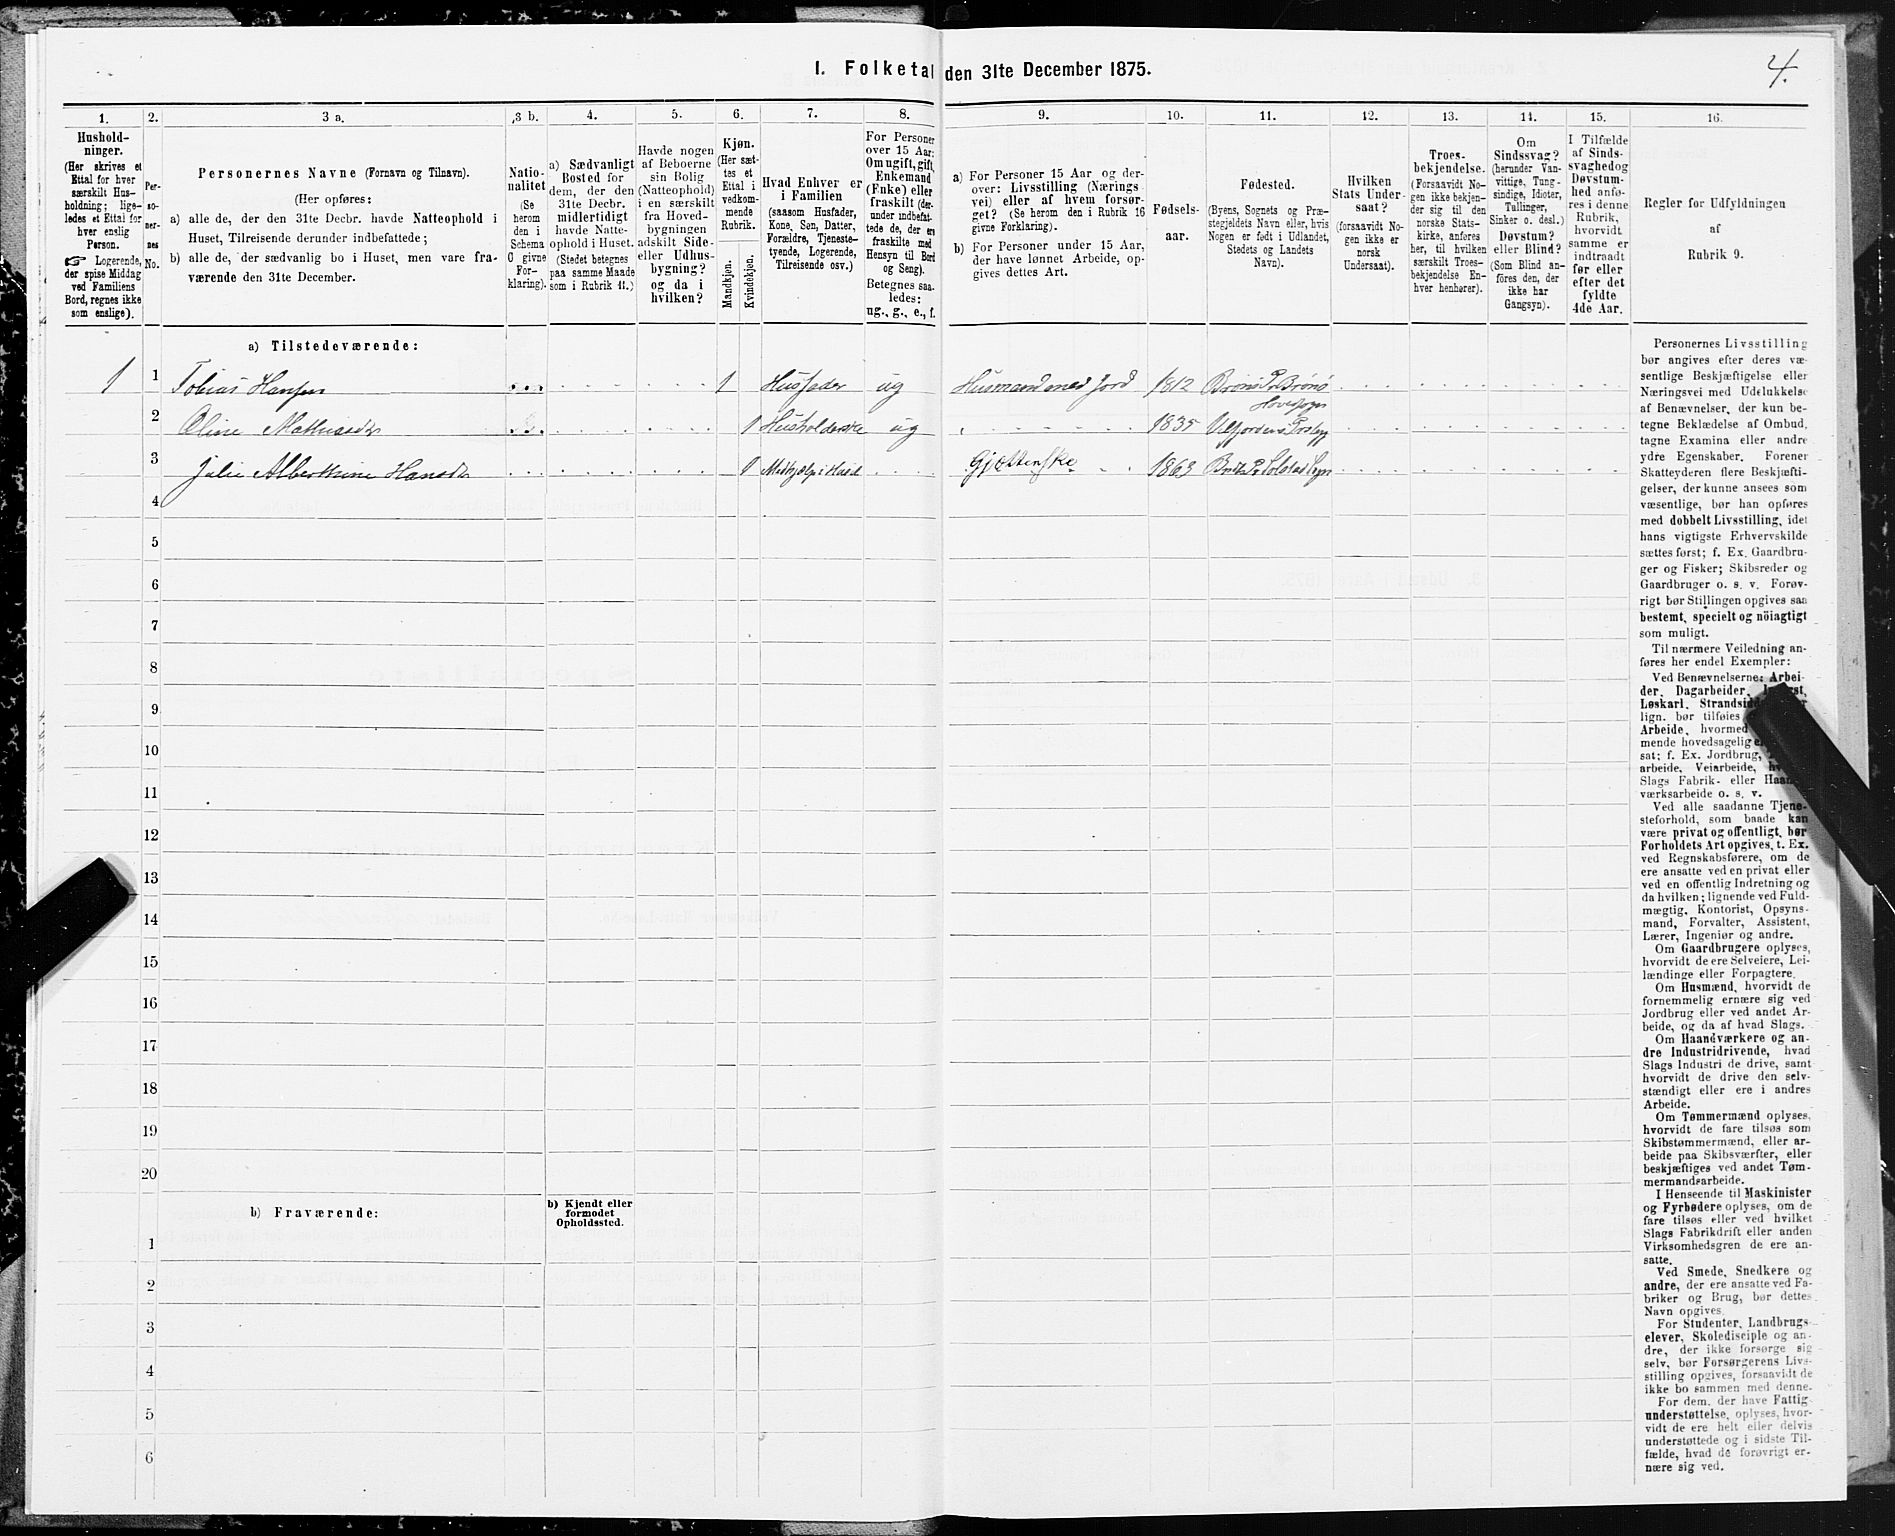 I. Folketal den 31te December 1875.
4.
1.
2.
3 a.
3 b.
4.
5.
6.
7.
8.
9.
10.
11.
12.
13.
14.
15.
16.
Hushold-
ninger.
(Her skrives et
Ettal for hver
særskilt Hus-
holdning; lige-
ledes et Ettal for
hver enslig
Person.
☞ Logerende,
der spise Middag
ved Familiens
Bord, regnes ikke
som enslige).
Per-
so-
ner-
nes
No.
Personernes Navne (Fornavn og Tilnavn).
(Her opføres:
a) alle de, der den 31te Decbr. havde Natteophold i
Huset, Tilreisende derunder indbefattede;
b) alle de, der sædvanlig bo i Huset, men vare fra-
værende den 31te December.
Natio-
nalitet
(Se
herom
den i
Schema
C givne
For-
klaring).
a) Sædvanligt
Bosted for
dem, der den
31te Decbr.
midlertidigt
havde Natte-
ophold i Huset.
(Stedet betegnes
paa samme Maade
som i Rubrik 11.)
Havde nogen
af Beboerne
sin Bolig
(Natteophold)
i en særskilt
fra Hoved-
bygningen
adskilt Side-
eller Udhus-
bygning?
og da i
hvilken?
Kjøn.
(Her sæt-
tes et
Ettal i
vedkom-
mende
Rubrik.
Mandkjøn.
Kvindekjøn.
Hvad Enhver er
i Familien
(saasom Husfader,
Kone, Søn, Datter,
Forældre, Tjeneste-
tyende, Logerende,
Tilreisende osv.)
For Personer
over 15 Aar:
Om ugift, gift,
Enkemand
(Enke) eller
fraskilt (der-
under indbefat-
tede de, der ere
fraskilte med
Hensyn til Bord
og Seng).
Betegnes saa-
ledes:
ug., g., e., f.
a) For Personer 15 Aar og der-
over: Livsstilling (Nærings-
vei) eller af hvem forsør-
get? (Se herom den i Rubrik 16
givne Forklaring).
b) For Personer under 15 Aar,
der have lønnet Arbeide, op-
gives dettes Art.
Fødsels-
aar.
Fødested.
(Byens, Sognets og Præ-
stegjeldets Navn eller, hvis
Nogen er født i Udlandet,
Stedets og Landets
Navn).
Hvilken
Stats Under-
saat?
(forsaavidt No-
gen ikke er
norsk
Undersaat).
Troes-
bekjendelse.
(Forsaavidt No-
gen ikke bekjen-
der sig til den
norske Stats-
kirke, anføres
her, til hvilken
særskilt Troes-
bekjendelse En-
hver henhører).
Om
Sindssvag?
(herunder Van-
vittige, Tung-
sindige, Idioter,
Tullinger,
Sinker o. desl.)
Døvstum?
eller Blind?
(Som Blind an-
føres den, der
ikke har
Gangsyn).
I Tilfælde
af Sinds-
svaghed og
Døvstum-
hed anfø-
res i denne
Rubrik,
hvorvidt
samme er
indtraadt
før eller
efter det
fyldte
4de Aar.
Regler for Udfyldningen
af
Rubrik 9.
a) Tilstedeværende:
1 1 Tobias Hansen 1 Husfader ug Husmand med Jord 1812 Brønø P. Brønø Hovedsogn
2 Oline Mathiasdtr 1 Husholderske ug 1835
3 Julie Albertine Hansdtr 1 Medhjælp i Huset 1863
4
5
6
7
8
9
10
11
12
13
14
15
16
17
18
19
20
b) Fraværende:
b) Kjendt eller
formodet
Opholdssted.
1
2
3
4
5
6
Personernes Livsstilling
bør angives efter deres væ-
sentlige Beskjæftigelse eller
Næringsvei med Udelukkelse
af Benævnelser, der kun be-
tegne Beklædelse af Ombud,
tagne Examina eller andre
ydre Egenskaber. Forener
Skatteyderen flere Beskjæfti-
gelser, der kunne ansees som
væsentlige, bør han opføres
med dobbelt Livsstilling, idet
hans vigtigste Erhvervskilde
sættes først; f. Ex. Gaardbru-
ger og Fisker; Skibsreder og
Gaardbruger o. s. v. Forøv-
rigt bør Stillingen opgives saa
bestemt, specielt og nöiagtigt
som muligt.
Til nærmere Veiledning an-
føres her endel Exempler:
Ved Benævnelserne: Arbei-
der, Dagarbeider,
Løskarl,
lign. bør tilføies
Arbeide, hvormed
mende hovedsagelig
sat; f. Ex. Jordbrug,
arbeide, Veiarbeide,
Slags Fabrik- eller
værksarbeide o. s. v.
Ved alle saadanne Tjene-
steforhold, som baade kan
være privat og offentligt, bør
Forholdets Art opgives, t. Ex.
ved Regnskabsførere, om de
ere ansatte ved en privat eller
ved en offentlig Indretning og
da hvilken; lignende ved Fuld-
mægtig, Kontorist, Opsyns-
mand, Forvalter, Assistent,
Lærer, Ingeniør og andre.
Om Gaardbrugere oplyses,
hvorvidt de ere Selveiere, Lei-
lændinge eller Forpagtere.
Om Husmænd, hvorvidt de
fornemmelig ernære sig ved
Jordbrug eller ved andet Ar-
beide, og da af hvad Slags.
Om Haandværkere og an-
dre Industridrivende, hvad
Slags Industri de drive, samt
hvorvidt de drive den selv-
stændigt eller ere i andres
Arbeide.
Om Tømmermænd oplyses,
hvorvidt de fare tilsøs som
Skibstømmermænd, eller ar-
beide paa Skibsværfter, eller
beskjæftiges ved andet Tøm-
mermandsarbeide.
I Henseende til Maskinister
og Fyrbødere oplyses, om de
fare tilsøs eller ved hvilket
Slags Fabrikdrift eller anden
Virksomhedsgren de ere an-
satte.
Ved Smede, Snedkere og
andre, der ere ansatte ved Fa-
briker og Brug, bør dettes
Navn opgives.
For Studenter, Landbrugs-
elever, Skoledisciple og an-
dre, der ikke forsørge sig
selv, bør Forsørgerens Livs-
stilling opgives, forsaavidt de
ikke bo sammen med denne.
For dem, der have Fattig-
understøttelse, oplyses, hvor-
vidt de ere helt eller delvis
understøttede og i sidste Til-
fælde, hvad de forøvrigt er-
nære sig ved.